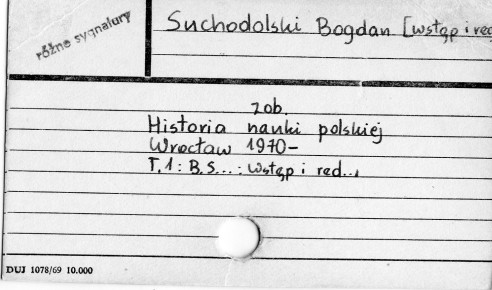 różne sygnatury
Suchodolski Bogdan [wstęp i red
zob.
Historia nauki polskiej
Wrocław 1970-
T.1: B.S...: Wstęp i red...
DUJ 1078/69 10.000